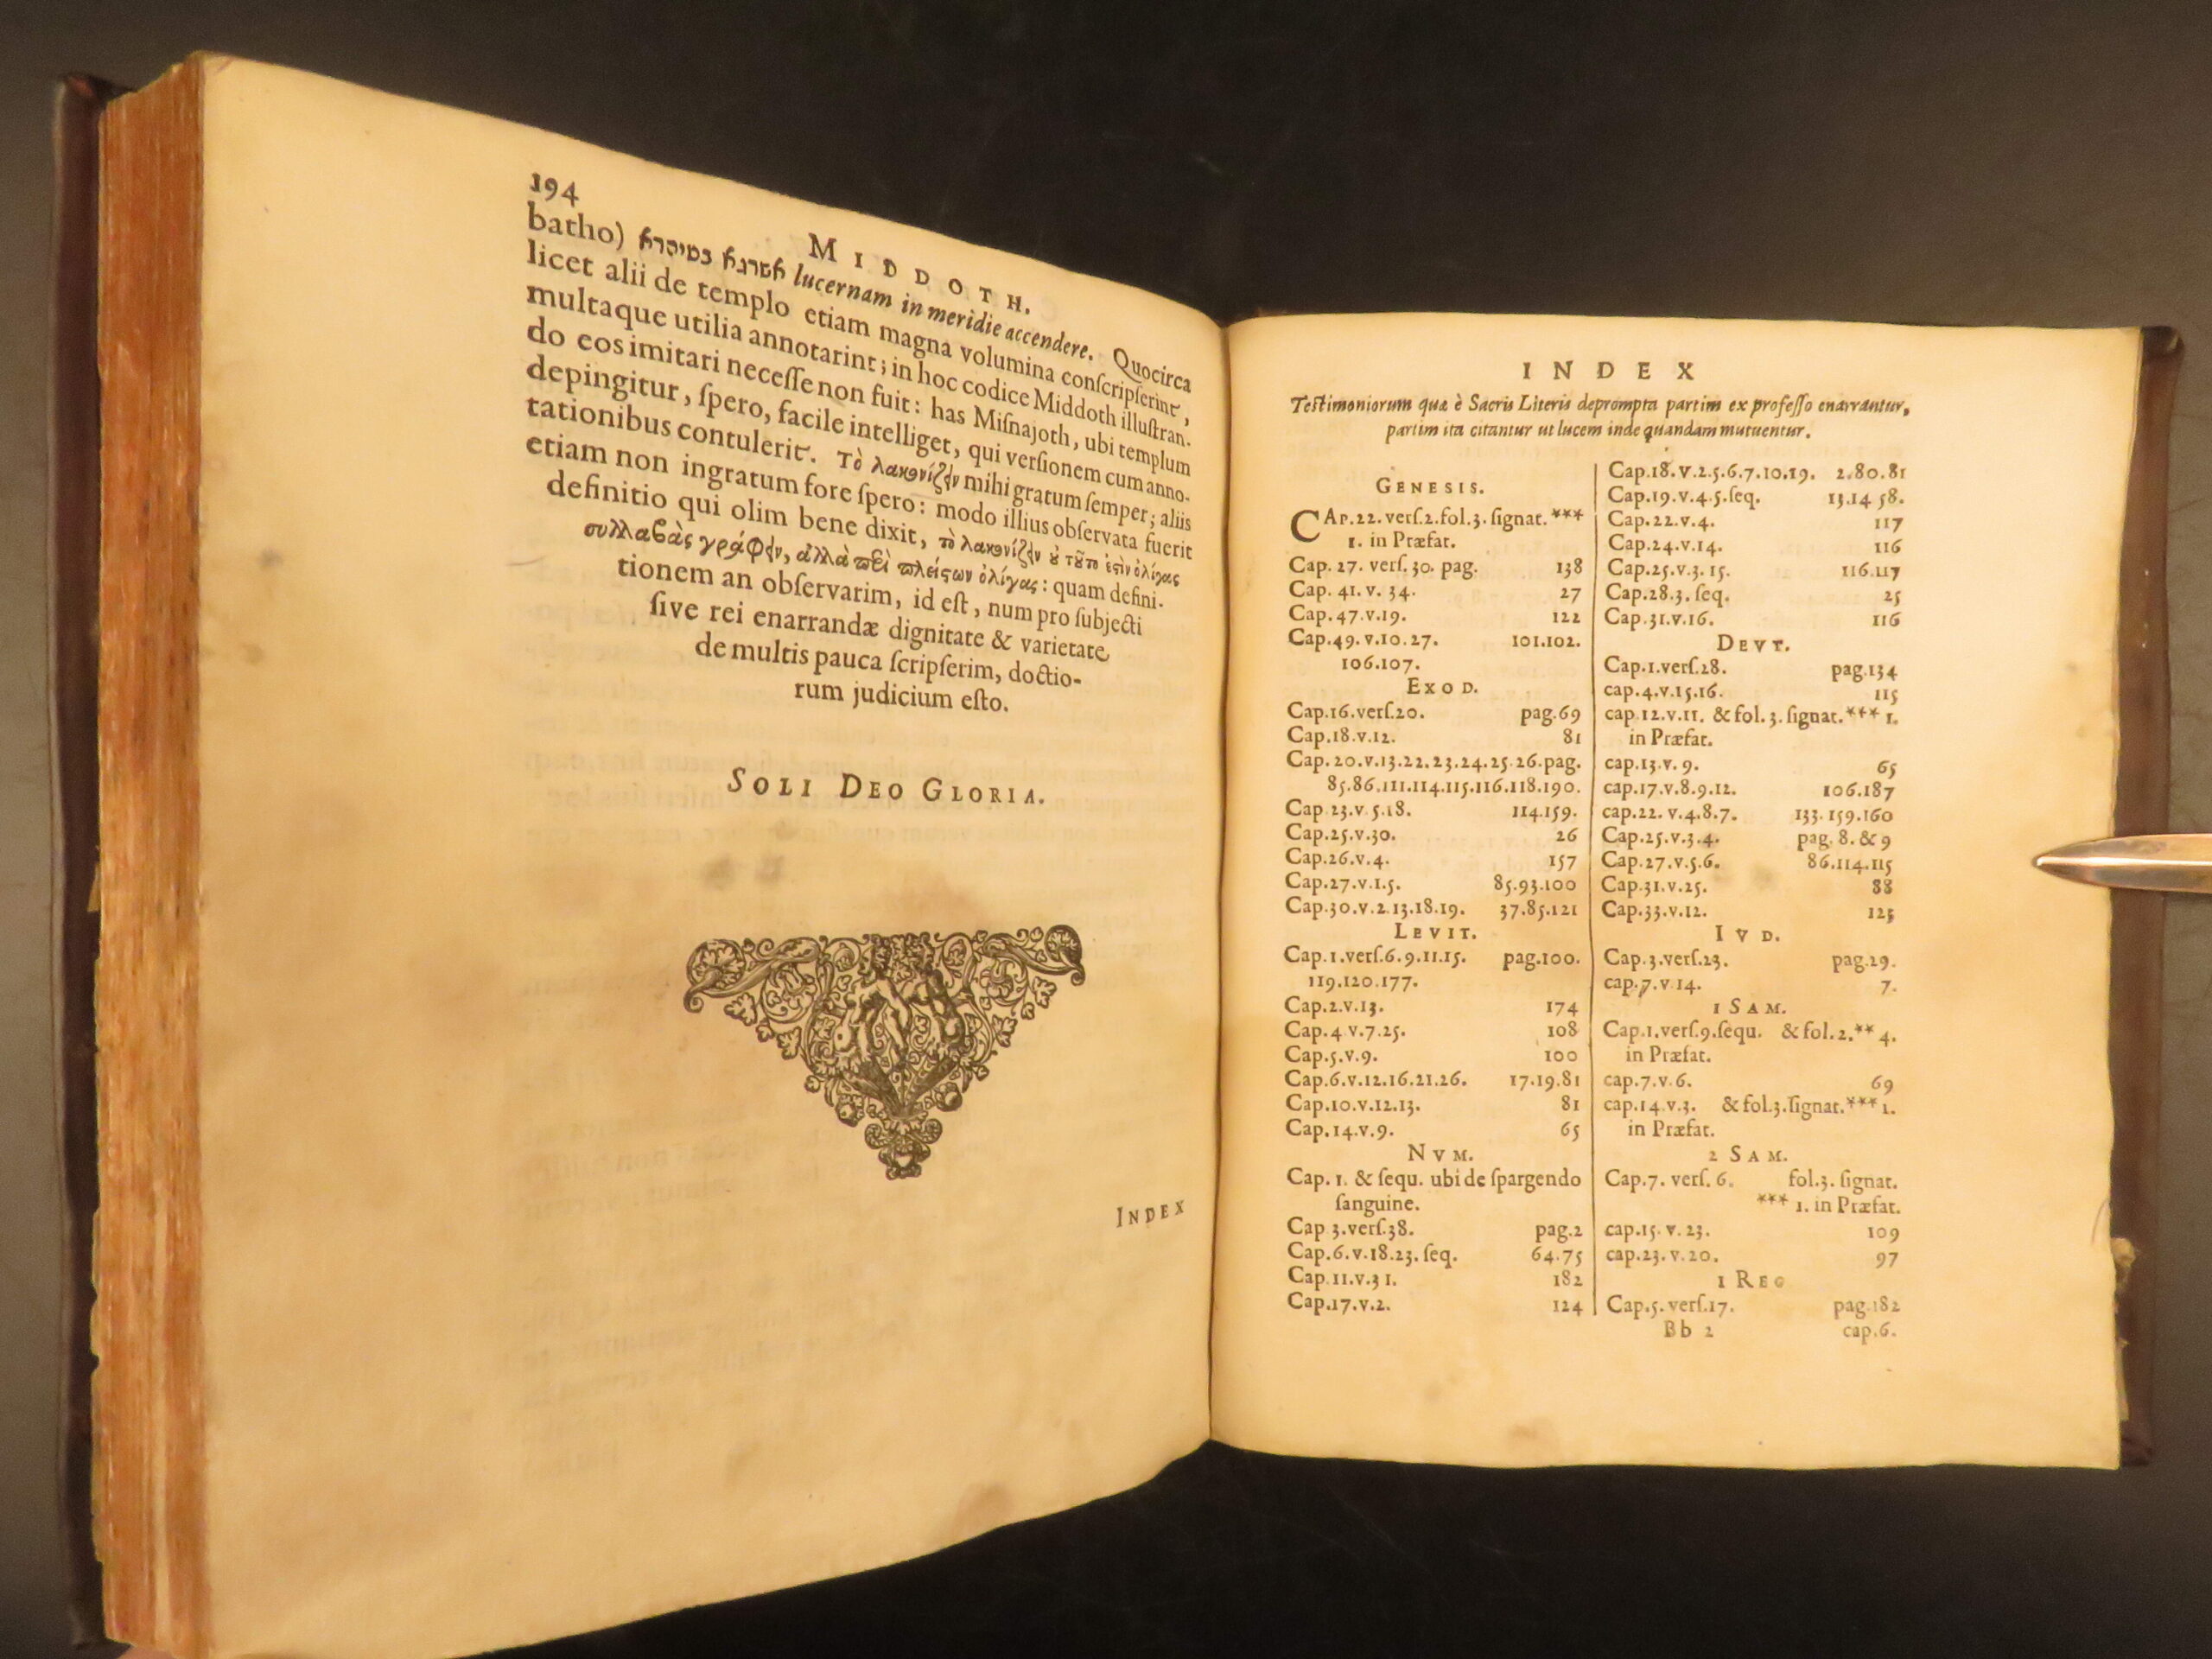 194
MIDDOTH.
batho) lucernam in meridie accendere. Quocirca
licet alii de templo etiam magna volumina conſcripſerint,
multaque utilia annotarint; in hoc codice Middoth illuſtran-
do eos imitari neceſſe non fuit: has Miſnajoth, ubi templum
depingitur, ſpero, facile intelliget, qui verſionem cum anno-
tationibus contulerit. Τὸ λακωνίζειν mihi gratum ſemper; aliis
etiam non ingratum fore ſpero: modo illius obſervata fuerit
definitio qui olim bene dixit, τὸ λακωνίζειν ȣ τȣ͂το ἐςὶν ὀλίγας
συλλαβὰς γράφειν, ἀλλὰ πλείςων ὀλίγας: quam defini-
tionem an obſervarim, id eſt, num pro ſubjecti
ſive rei enarrandæ dignitate & varietate
de multis pauca ſcripſerim, doctio-
rum judicium eſto.
SOLI DEO GLORIA.
INDEX
INDEX
Teſtimoniorum quæ è Sacris Literis deprompta partim ex profeſſo enarrantur,
partim ita citantur ut lucem inde quandam mutuentur.
GENESIS.
CAp.22.verſ.2.fol.3.ſignat.***
1. in Præfat.
Cap. 27. verſ. 30. pag. 138
Cap. 41. v. 34. 27
Cap.47.v.19. 122
Cap.49.v.10.27. 101.102.
106.107.
EXOD.
Cap.16.verſ.20. pag.69
Cap.18.v.12. 81
Cap.20.v.13.22.23.24.25.26.pag.
85.86.111.114.115.116.118.190.
Cap.23.v.5.18. 114.159.
Cap.25.v.30. 26
Cap.26.v.4. 157
Cap.27.v.1.5. 85.93.100
Cap.30.v.2.13.18.19. 37.85.121
LEVIT.
Cap.1.verſ.6.9.11.15. pag.100.
119.120.177.
Cap.2.v.13. 174
Cap.4 v.7.25. 108
Cap.5.v.9. 100
Cap.6.v.12.16.21.26. 17.19.81
Cap.10.v.12.13. 81
Cap.14.v.9. 65
NVM.
Cap. 1. & ſequ. ubi de ſpargendo
ſanguine.
Cap 3.verſ.38. pag.2
Cap.6.v.18.23. ſeq. 64.75
Cap.11.v.31. 182
Cap.17.v.2. 124
Cap.18.v.2.5.6.7.10.19. 2.80.81
Cap.19.v.4.5.ſeq. 13.14 58.
Cap.22.v.4. 117
Cap.24.v.14. 116
Cap.25.v.3.15. 116.117
Cap.28.3.ſeq. 25
Cap.31.v.16. 116
DEVT.
Cap.1.verſ.28. pag.134
cap.4.v.15.16. 115
cap.12.v.11. & fol.3.ſignat.***1.
in Præfat.
cap.13.v.9. 65
cap.17.v.8.9.12. 106.187
cap.22.v.4.8.7. 133.159.160
Cap.25.v.3.4. pag. 8. & 9
Cap.27.v.5.6. 86.114.115
Cap.31.v.25. 88
Cap.33.v.12. 125
IVD.
Cap.3.verſ.23. pag.29.
cap.7.v.14. 7.
1 SAM.
Cap.1.verſ.9.ſequ. & fol.2.**4.
in Præfat.
cap.7.v.6. 69
cap.14.v.3. & fol.3.ſignat.***1.
in Præfat.
2 SAM.
Cap.7. verſ.6. fol.3. ſignat.
*** 1. in Præfat.
cap.15.v.23. 109
cap.23.v.20. 97
1 REG
Cap.5.verſ.17. pag.182
Bb 2 cap.6.